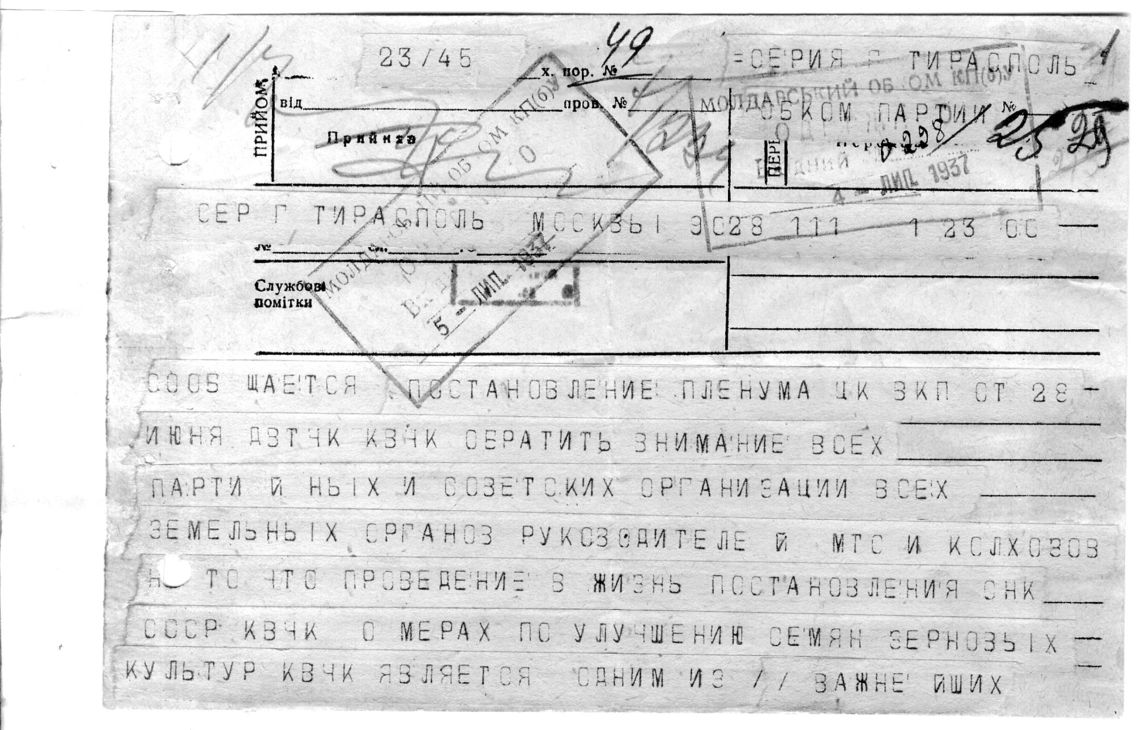 23/45
49
=СЕРИЯ Г ТИРАСПОЛЬ
х. пор. №
ПРИЙОМ
від
пров. №
МОЛДАРСЬКИЙ ОБ ОМ КП(б)У
ОБКОМ ПАРТИИ №
Прийняв
228
25 29
4 - ЛИП. 1937
СЕР Г ТИРАСПОЛЬ МОСКВЫ 9028 111 1 23 00
№
Службові
помітки
5 - ЛИП. 1937
СООБ ЩАЕТСЯ ПОСТАНОВЛЕНИЕ ПЛЕНУМА ЦК ВКП ОТ 28
ИЮНЯ ДВТЧК КВЧК ОБРАТИТЬ ВНИМАНИЕ ВСЕХ
ПАРТИ Й НЫХ И СОВЕТСКИХ ОРГАНИЗАЦИИ ВСЕХ
ЗЕМЕЛЬНЫХ ОРГАНОВ РУКОВОДИТЕЛЕ Й МТС И КОЛХОЗОВ
ТО ЧТО ПРОВЕДЕНИЕ В ЖИЗНЬ ПОСТАНОВЛЕНИЯ СНК
СССР КВЧК О МЕРАХ ПО УЛУЧШЕНИЮ СЕМЯН ЗЕРНОВЫХ
КУЛЬТУР КВЧК ЯВЛЯЕТСЯ ОДНИМ ИЗ // ВАЖНЕ ЙШИХ